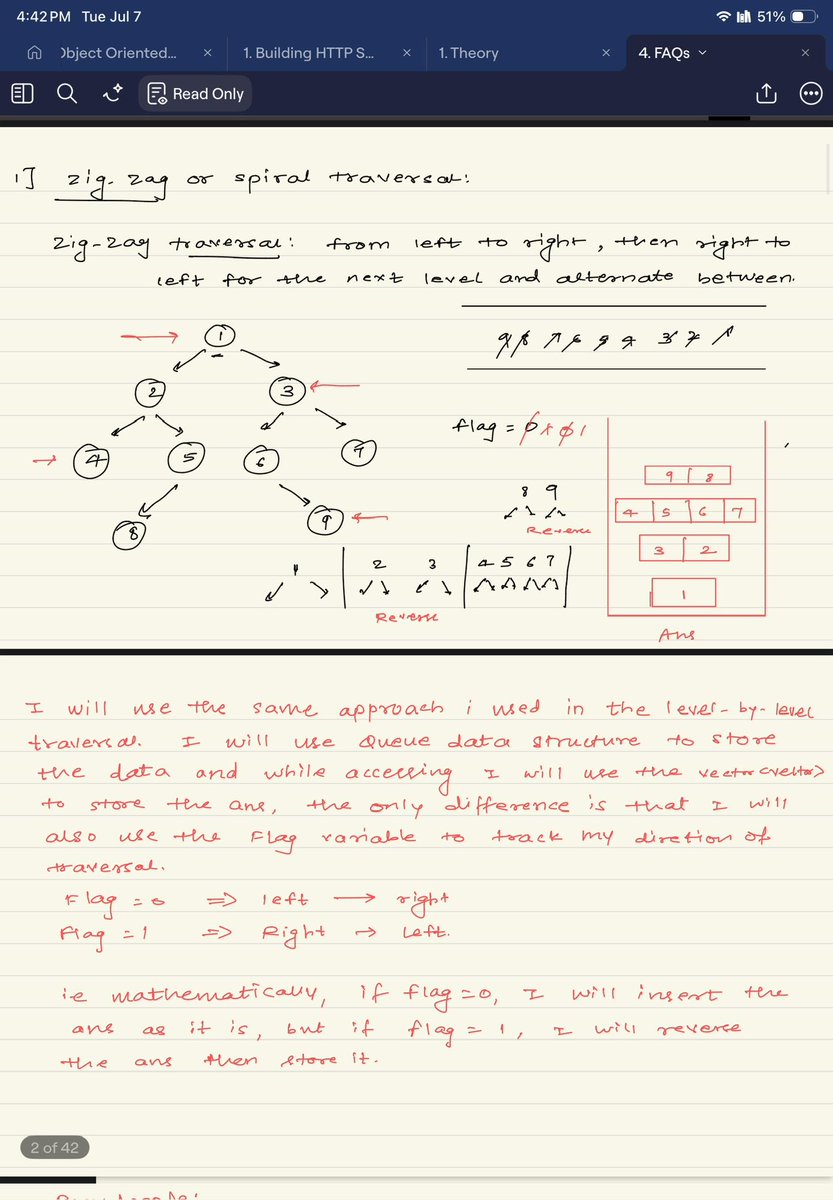 4:42 PM Tue Jul 7
51%
Object Oriented...
1. Building HTTP S...
1. Theory
4. FAQs
Read Only
1] zig-zag or spiral traversal:
Zig-zag traversal: from left to right, then right to
left for the next level and alternate between.
1
2 3
4 5 6 7
8 9
flag = 0 1 0 1
8 9
Reverse
1 2 3 4 5 6 7
Reverse
9 8
4 5 6 7
3 2
1
Ans
I will use the same approach i used in the level-by-level
traversal. I will use Queue data structure to store
the data and while accessing I will use the vector<vector>
to store the ans, the only difference is that I will
also use the Flag variable to track my diretion of
traversal.
Flag = 0 => left → right
Flag = 1 => Right → Left.
ie mathematically, if flag = 0, I will insert the
ans as it is, but if flag = 1, I will reverse
the ans then store it.
2 of 42